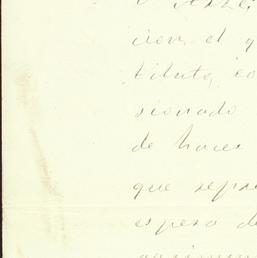 cion, el q
tituto, co
sionado
de haces
que repre
espero de